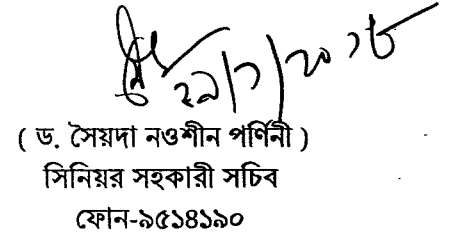 ২৯/১/২০১৮
( ড. সৈয়দা নওশীন পর্ণিনী )
সিনিয়র সহকারী সচিব
ফোন-৯৫১৪১৯০